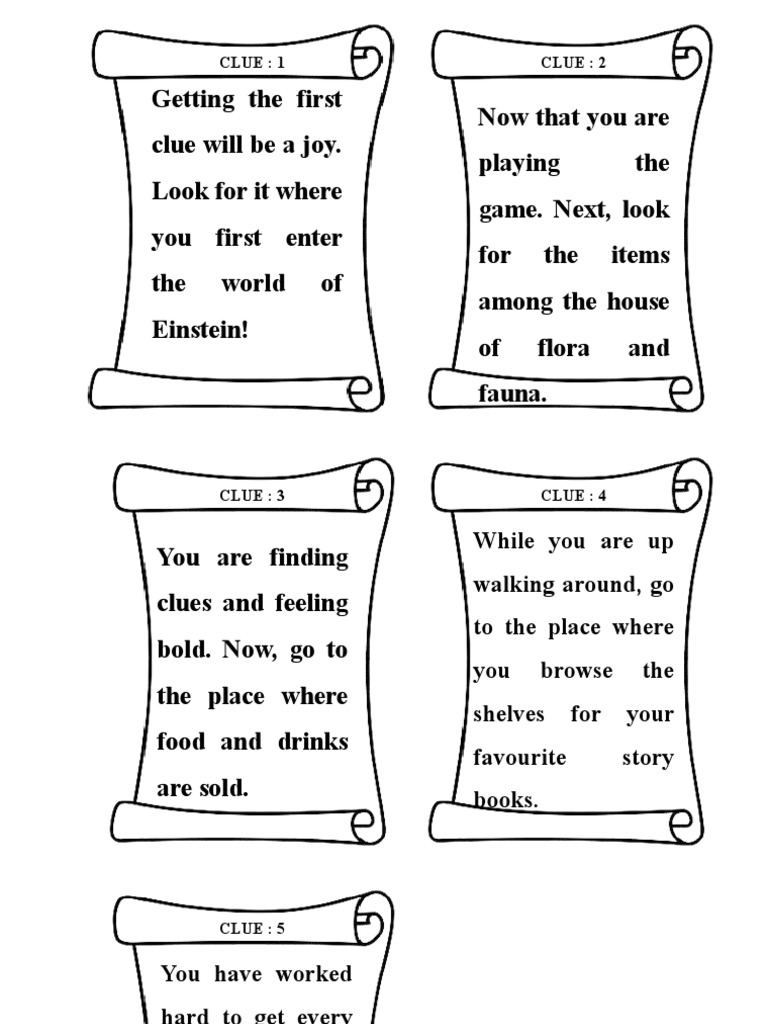 CLUE : 1
Getting the first
clue will be a joy.
Look for it where
you first enter
the world of
Einstein!
CLUE : 2
Now that you are
playing the
game. Next, look
for the items
among the house
of flora and
fauna.
CLUE : 3
You are finding
clues and feeling
bold. Now, go to
the place where
food and drinks
are sold.
CLUE : 4
While you are up
walking around, go
to the place where
you browse the
shelves for your
favourite story
books.
CLUE : 5
You have worked
hard to get every